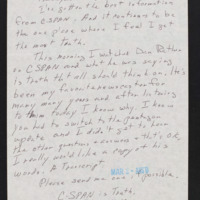 I've gotten the best information
from C-SPAN. And it continues to be
the one place where I feel I get
the most Truth.
This morning I watched Dan Rather
on C-SPAN and what he was saying
is truth that all should think on. He's
been my favorite newsreporter for
many many years and after listening
to him today I know why. I know
you had to switch to the
update and I didn't get to hear
the other questions + answers + that's O.K.
I really would like a copy of his
words. A Transcript.
Please send me one if possible.
C-SPAN is Truth.